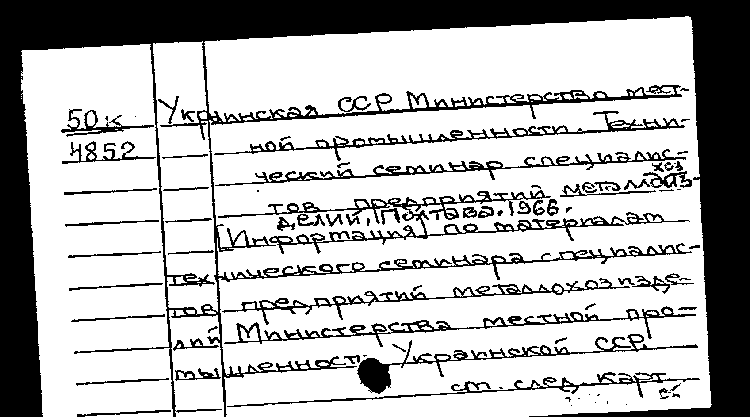 50к Украинская ССР. Министерство мест-
4852 ной промышленности. Техни-
ческий семинар специалис-
хоз
тов предприятий металлоиз-
делий, Полтава. 1966.
[Информация] по материалам
технического семинара специалис-
тов предприятий металлохозизде-
лий Министерства местной про-
мышленности Украинской ССР.
см. след. карт.